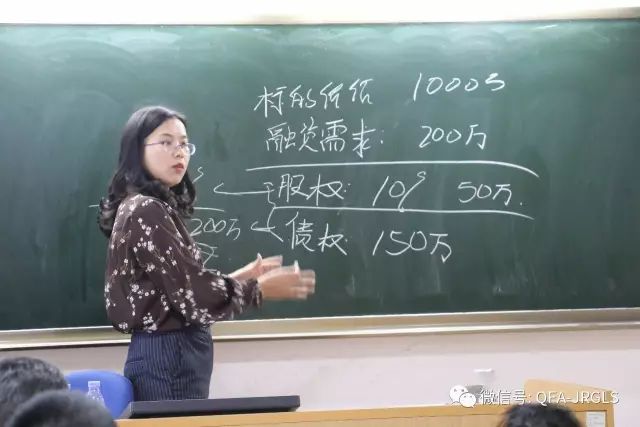 标的估价 1000万
融资需求: 200万
股权: 10% 50万.
200万
债权: 150万
微信号: QFA-JRGLS